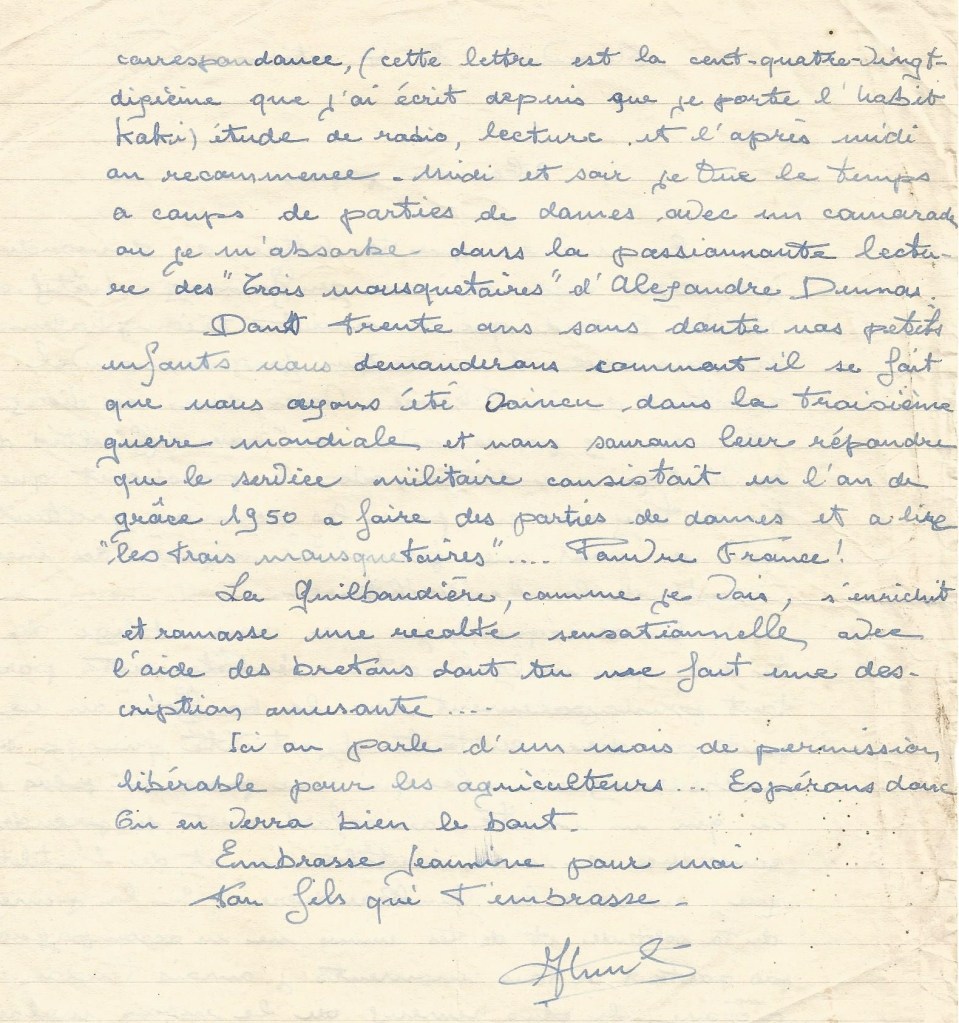 correspondance, (cette lettre est la cent-quatre-vingt-
dixième que j'ai écrit depuis que je porte l'habit
kaki) étude de radio, lecture. et l'après midi
on recommence - Midi et soir je tue le temps
a coups de parties de dames avec un camarade
ou je m'absorbe dans la passionnante lectu-
re des "Trois mousquetaires" d'Alexandre Dumas.
Dans trente ans sans doute nos petits
enfants nous demanderons comment il se fait
que nous ayons été vaincu dans la troisième
guerre mondiale et nous saurons leur répondre
que le service militaire consistait en l'an de
grâce 1950 a faire des parties de dames et a lire
"les trois mousquetaires".... Pauvre France!
La Guilbaudière, comme je vois, s'enrichit
et ramasse une recolte sensationnelle avec
l'aide des bretons dont tu me fait une des-
cription amusante ....
Ici on parle d'un mois de permission
libérable pour les agriculteurs... Espérons donc
On en verra bien le bout.
Embrasse Jeannine pour moi
ton fils qui t'embrasse -